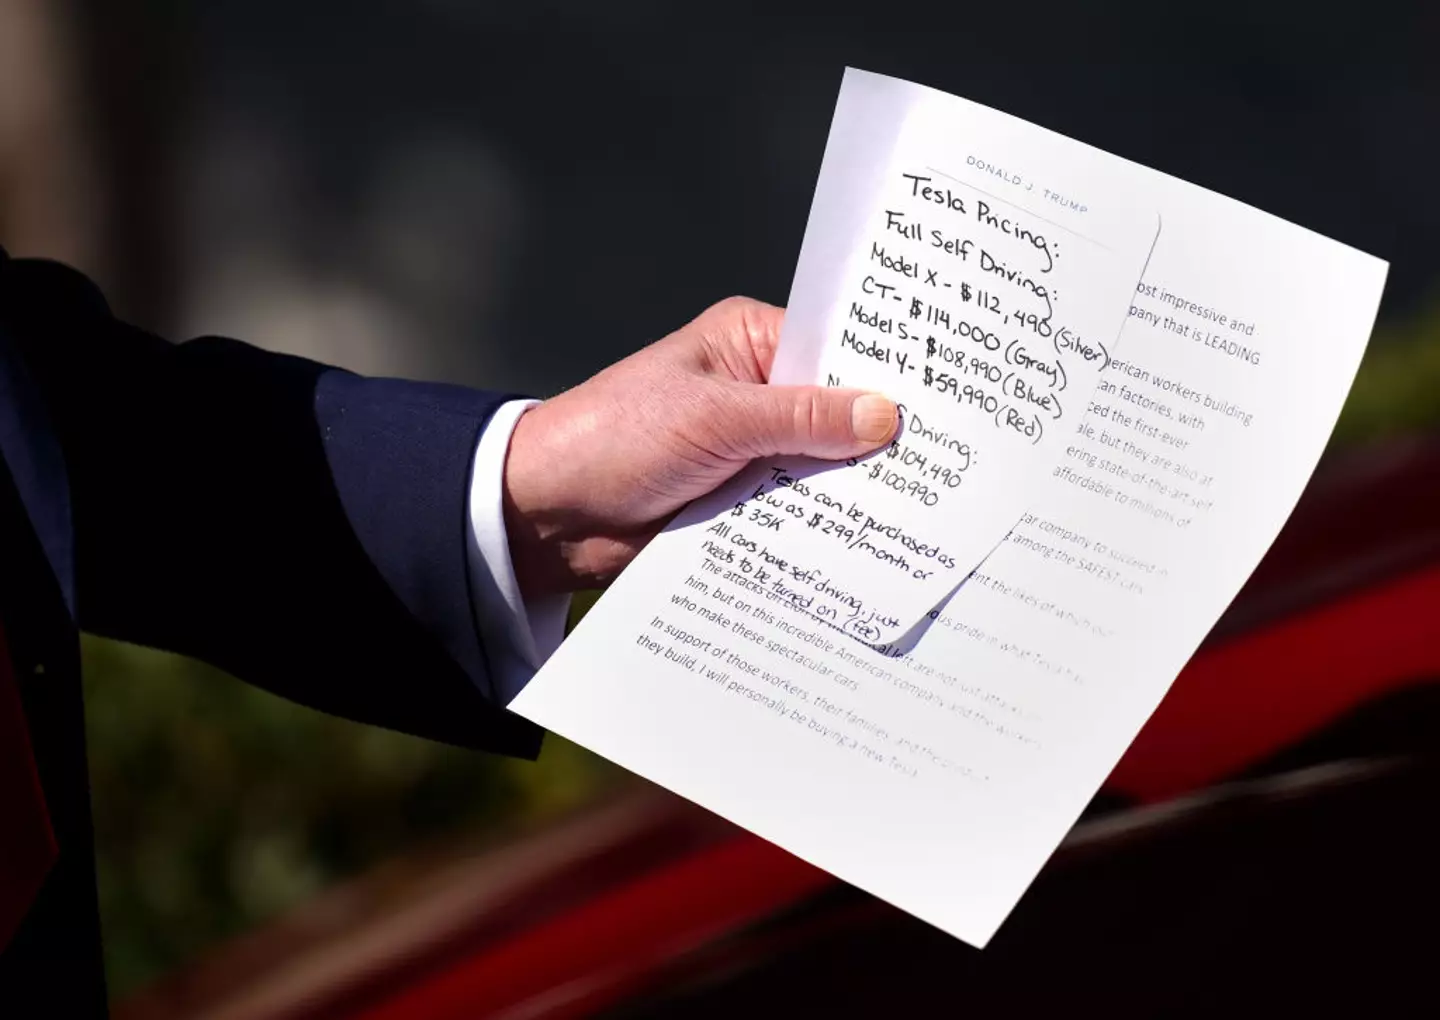 DONALD J. TRUMP
Tesla Pricing:
Full Self Driving:
Model X - $112,490 (Silver)
CT - $114,000 (Gray)
Model S - $108,990 (Blue)
Model Y - $59,990 (Red)
Driving:
$104,490
S - $100,990
Teslas can be purchased as
low as $299/month or
$35K
All cars have self driving, just
needs to be turned on (fee)
ost impressive and
pany that is LEADING
erican workers building
an factories, with
ced the first-ever
ale, but they are also at
ering state-of-the-art self
affordable to millions of
car company to succeed in
among the SAFEST cars
ent the likes of which our
ous pride in what Tesla has
The attacks on of the al left are not just attacks on
him, but on this incredible American company and the workers
who make these spectacular cars.
In support of those workers, their families, and the product
they build, I will personally be buying a new Tesla.